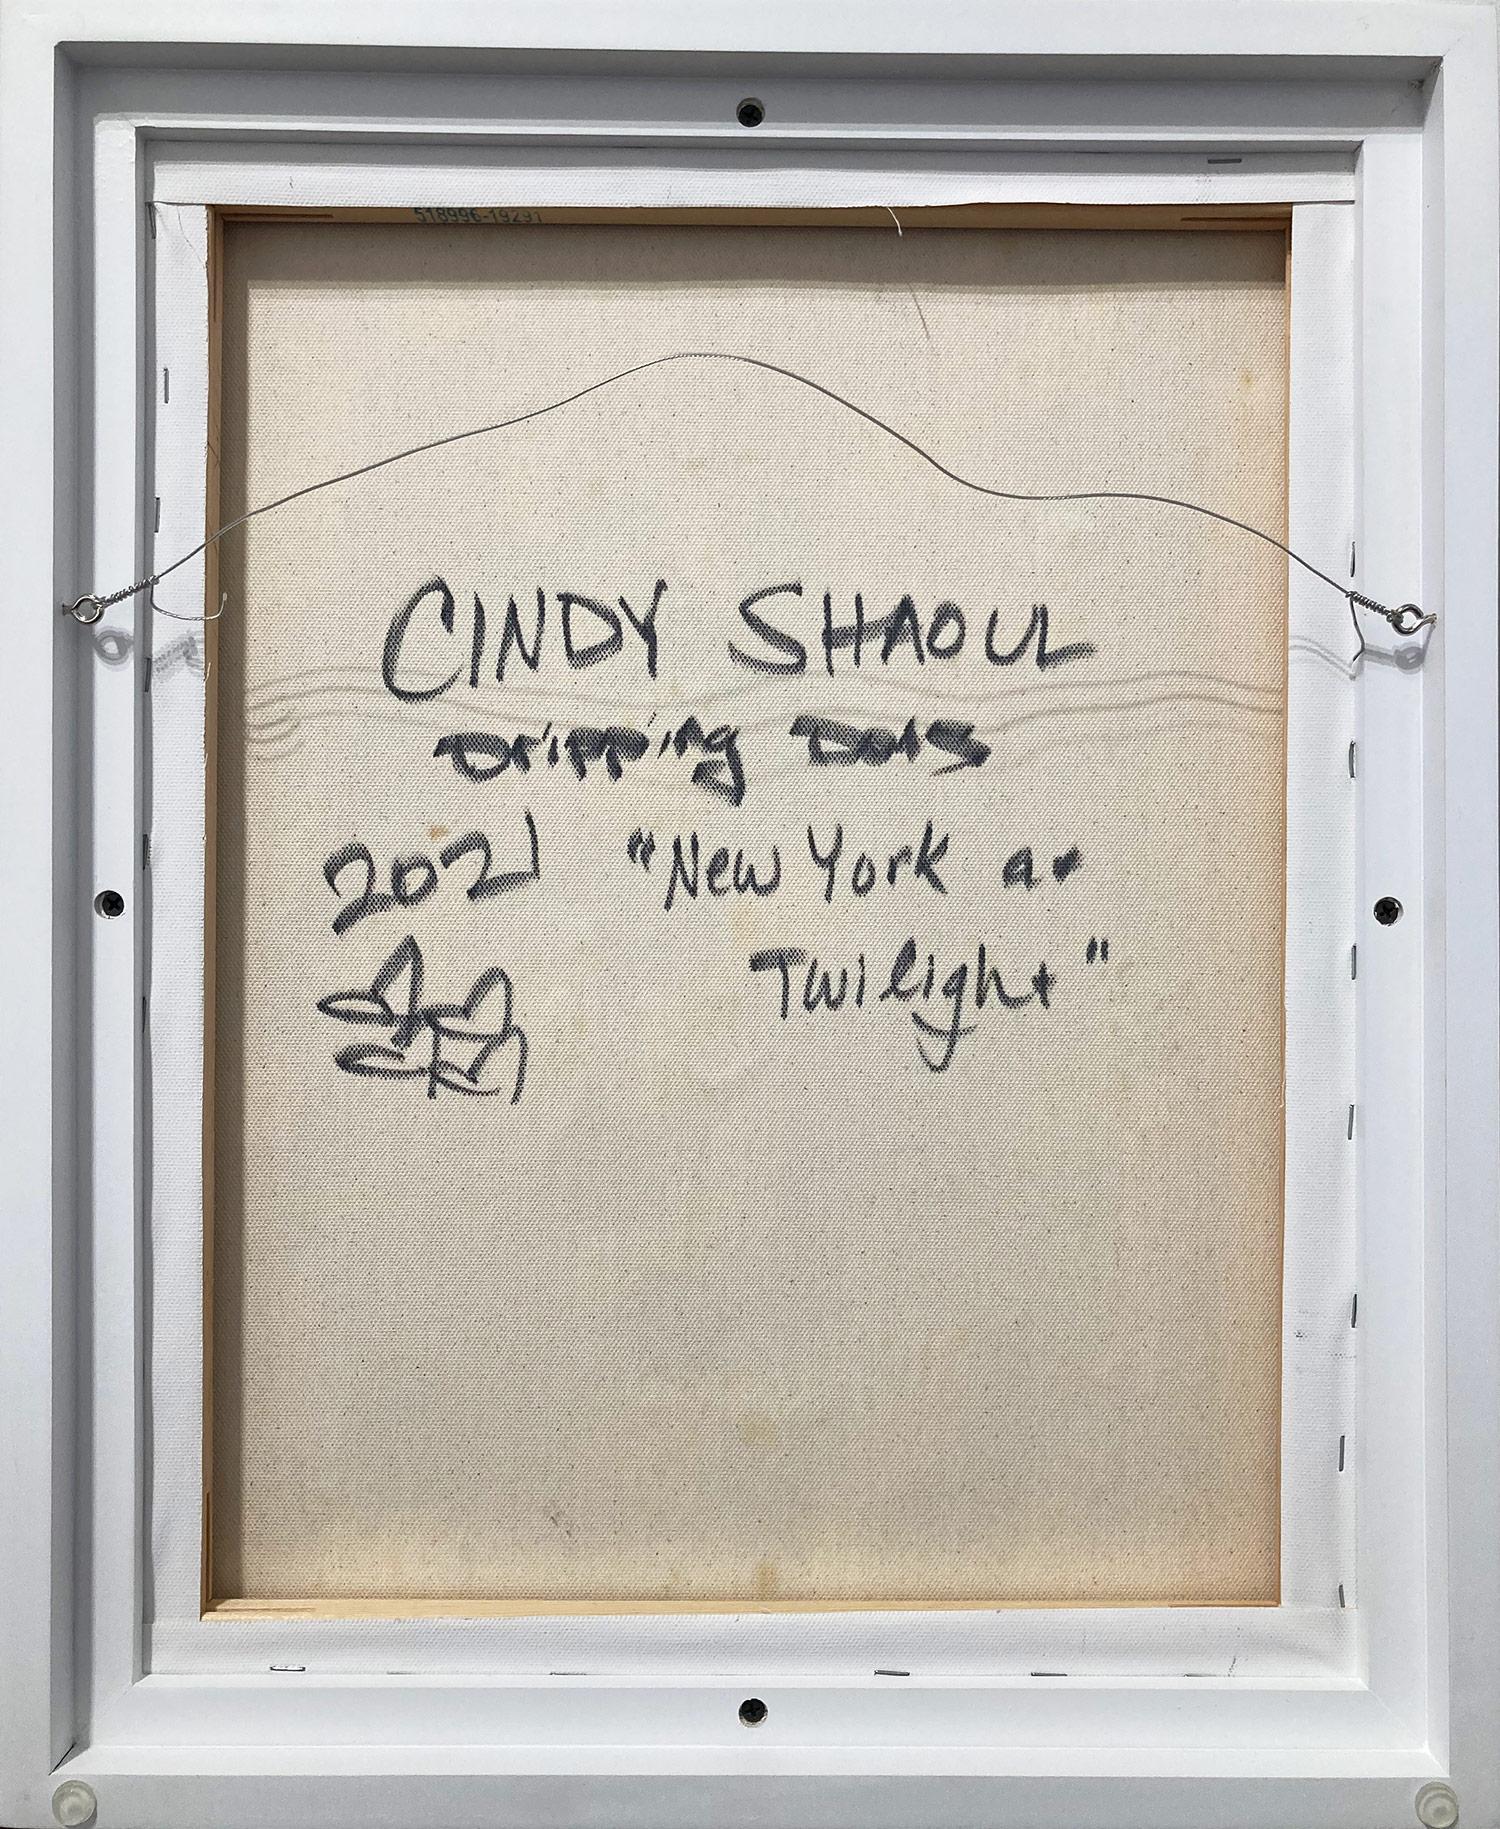 518996-19291
CINDY SHAOUL
Dripping Dots
2021 "New York at
Twilight"